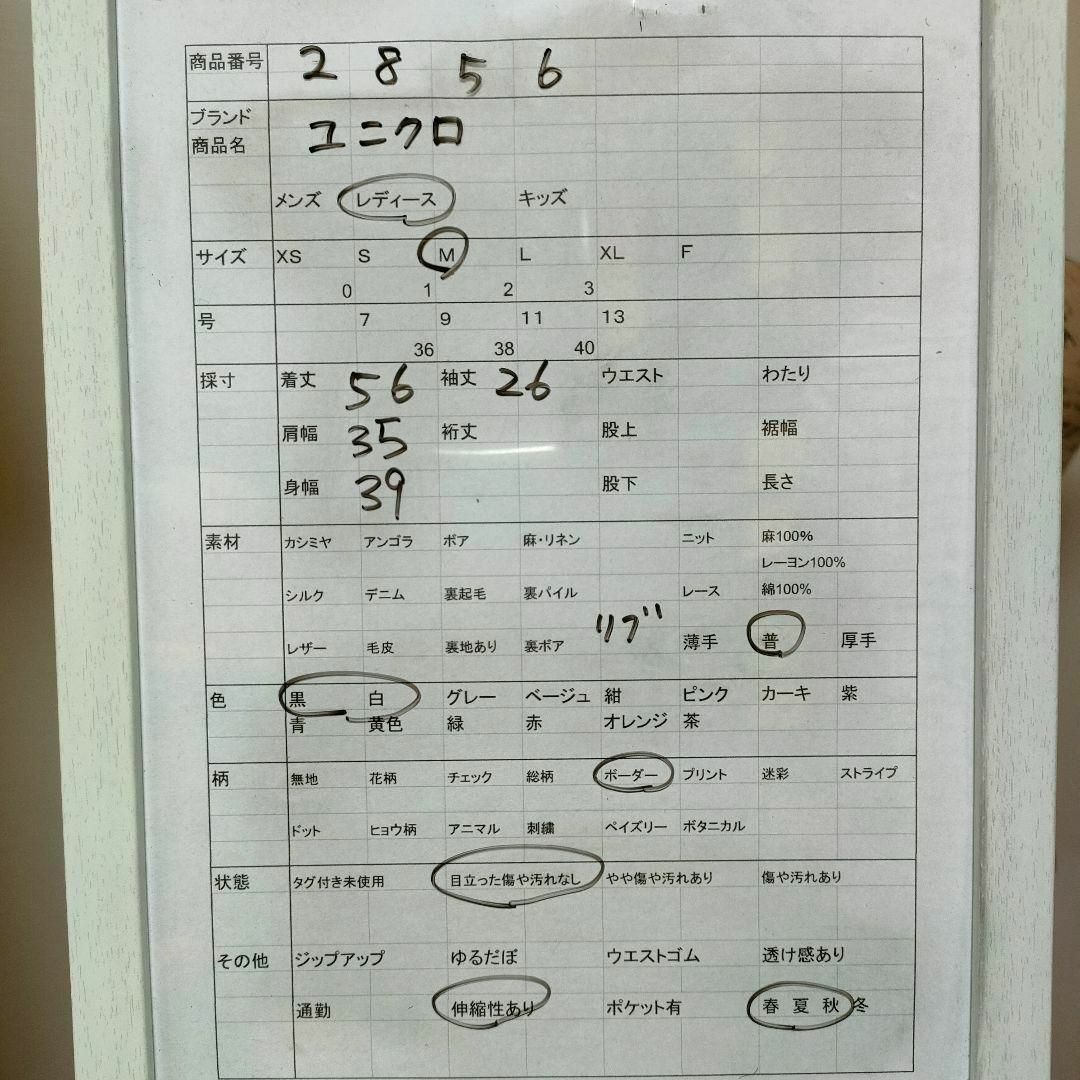 商品番号 2 8 5 6
ブランド
商品名 ユニクロ
メンズ レディース キッズ
サイズ XS S M L XL F
0 1 2 3
号 7 9 11 13
36 38 40
採寸 着丈 56 袖丈 26 ウエスト わたり
肩幅 35 裄丈 股上 裾幅
身幅 39 股下 長さ
素材 カシミヤ アンゴラ ボア 麻・リネン ニット 麻100%
レーヨン100%
シルク デニム 裏起毛 裏パイル レース 綿100%
レザー 毛皮 裏地あり 裏ボア リブ 薄手 普 厚手
色 黒 白 グレー ベージュ 紺 ピンク カーキ 紫
青 黄色 緑 赤 オレンジ 茶
柄 無地 花柄 チェック 総柄 ボーダー プリント 迷彩 ストライプ
ドット ヒョウ柄 アニマル 刺繍 ペイズリー ボタニカル
状態 タグ付き未使用 目立った傷や汚れなし やや傷や汚れあり 傷や汚れあり
その他 ジップアップ ゆるだぼ ウエストゴム 透け感あり
通勤 伸縮性あり ポケット有 春 夏 秋 冬